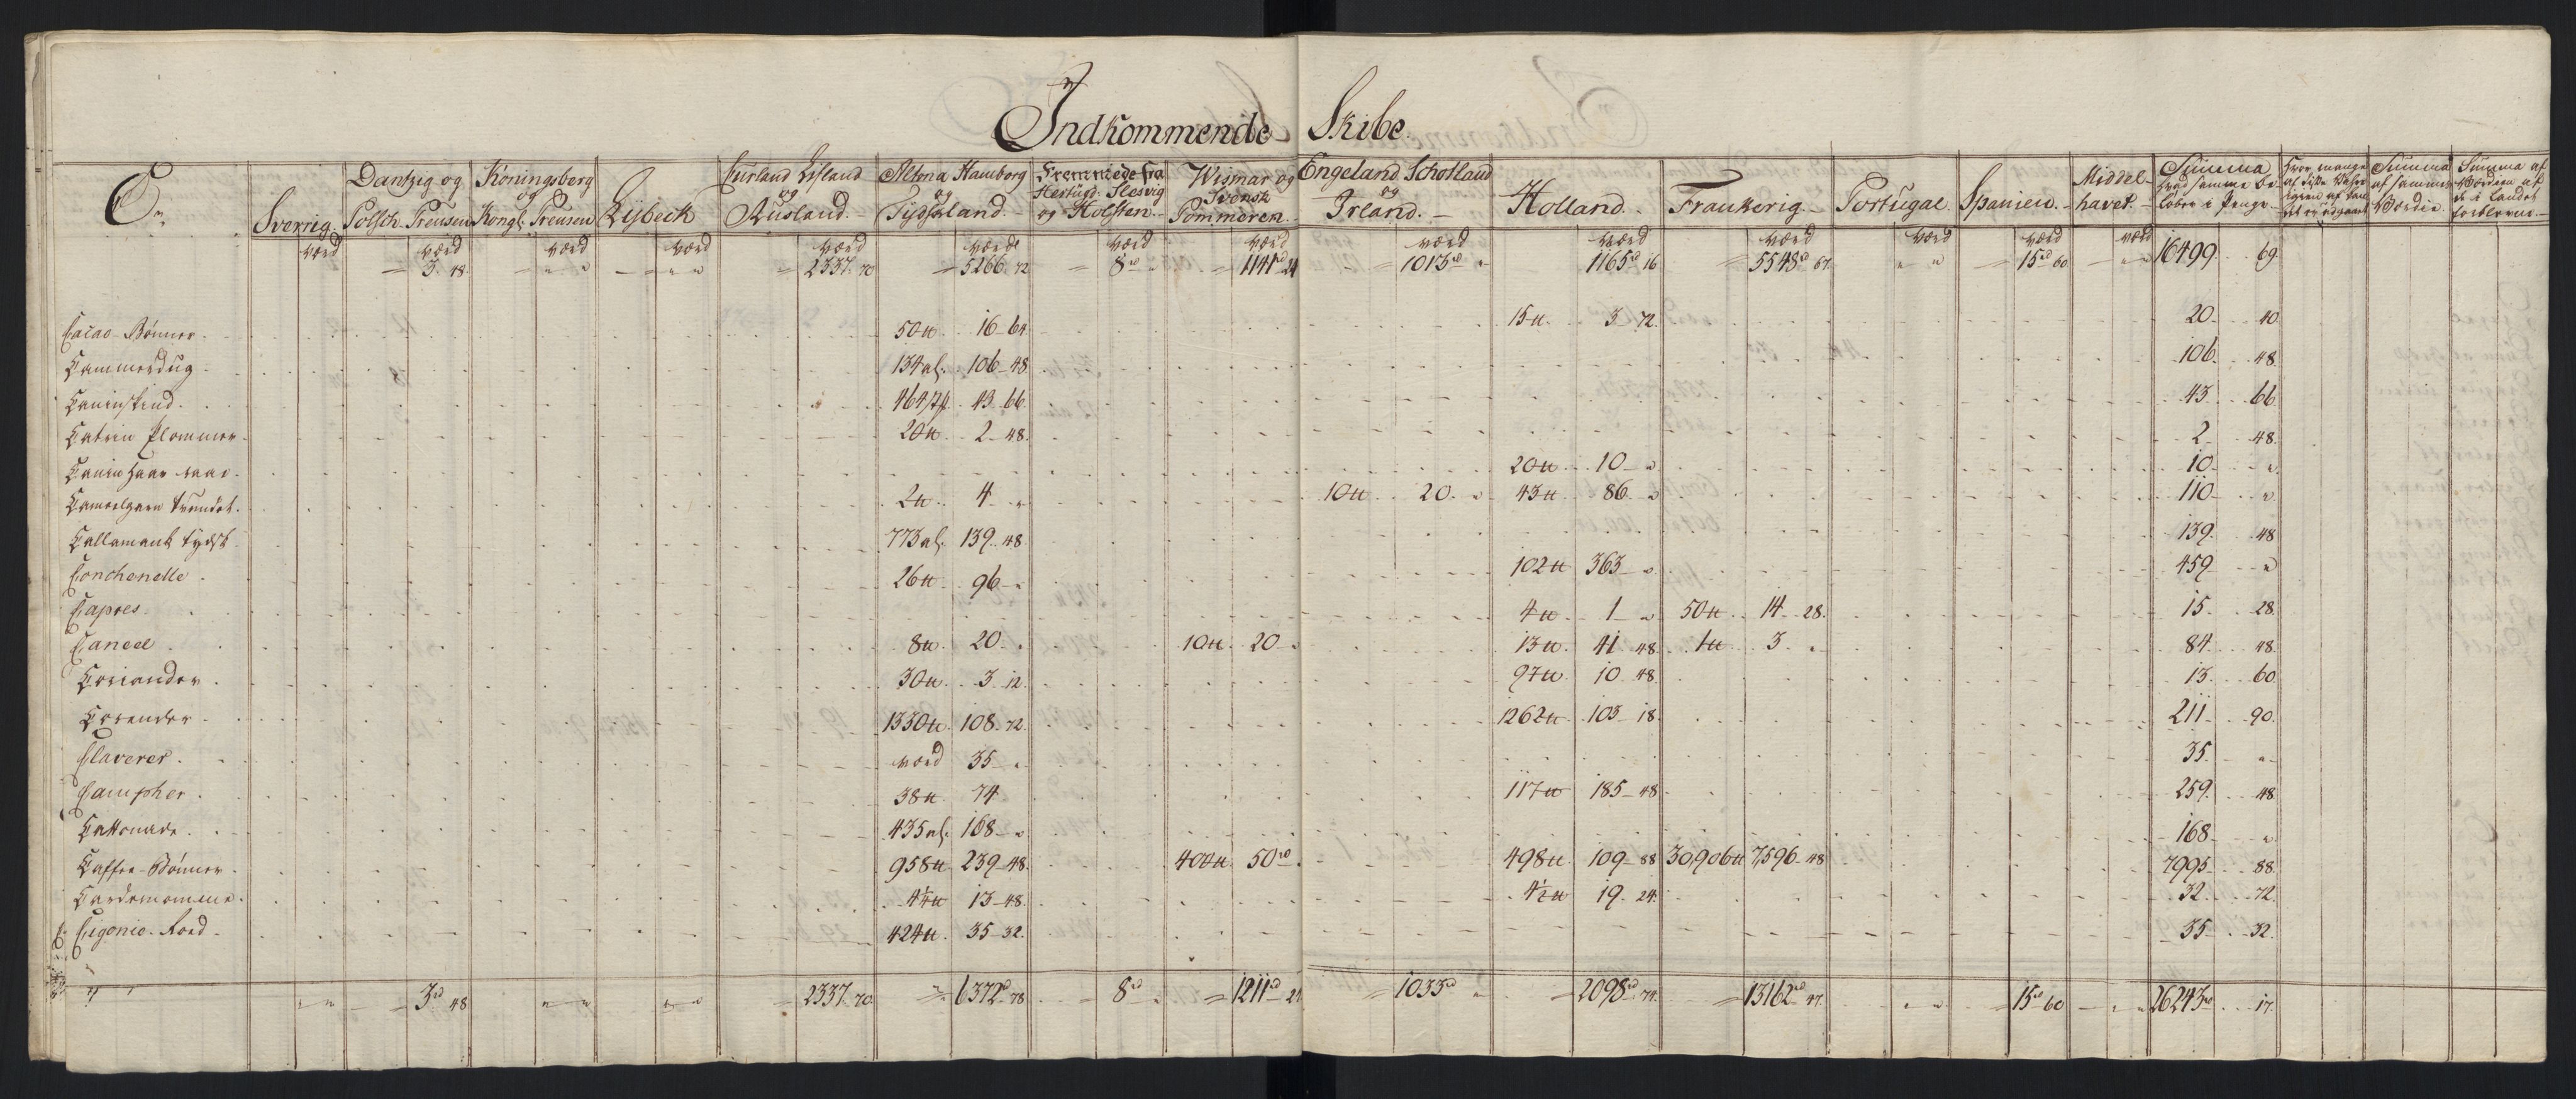 Indkommende Skibe
C.
Sverrig. Dantzig og Polsch-Preusen Köningsberg og Kongl: Preusen Lÿbeck Curland Lifland og Rusland. Altona Hamborg og Tydskland. Fremmede fra Hertügd: Slesvig og Holsten. Wismar og Svensk Pommeren. Engeland Schotland og Irland. Holland. Frankerig. Portugal. Spanien. Middel-havet. Summa
værd værd værd værd værd værd værd værd værd værd værd værd værd værd
3. 48. 2337. 70 5266. 72 8 rd 1141 rd 24 1013 rd 1165 rd 16 5548 rd 67. 15 rd 60 16499. 69.
Cacao-Bønner. 50 ℔ 16 64 15 ℔ 3 72. 20. 40
Cammerdug. 134 al. 106 48 106. 48.
Caninskind. 464 43 66. 43. 66.
Catrin Blommer. 20 ℔ 2 48. 2 48.
Canin Haar 20 ℔ 10 10
Cameelgarn tvundet. 2 ℔ 4 10 ℔ 20 43 ℔ 86 110
Callamank tydsk 773 al. 139. 48. 139. 48
Conchenelle. 26 ℔ 96 102 ℔ 363 459
Capres. 4 ℔ 1 50 ℔ 14 28. 15. 28.
Caneel. 8 ℔ 20. 10 ℔ 20 13 ℔ 41 48 1 ℔ 3 84. 48.
Coriander. 30 ℔ 3 12. 97 ℔ 10 48. 13. 60.
Corender. 1330 ℔ 108. 72. 1262 ℔ 103 18. 211. 90.
Claverer. værd 35 35.
Campher. 38 ℔ 74 117 ℔ 185 48 259. 48.
Cattonade. 435 al. 168 168
Caffee-Bønner. 958 ℔ 239 48. 400 ℔ 50 rd 498 ℔ 109 88 30,906 ℔ 7,596 48 7995. 88.
Cardemomme. 4¼ ℔ 13 48. 4½ ℔ 19 24. 32. 72.
Cigonie-Roed. 424 ℔ 35 32. 35. 32.
3 rd 48 2337. 70. 6372 rd 78 8 rd 1211 rd 24 1033 rd 2098 rd 74. 13162 rd 47. 15 rd 60 26243 rd 17.